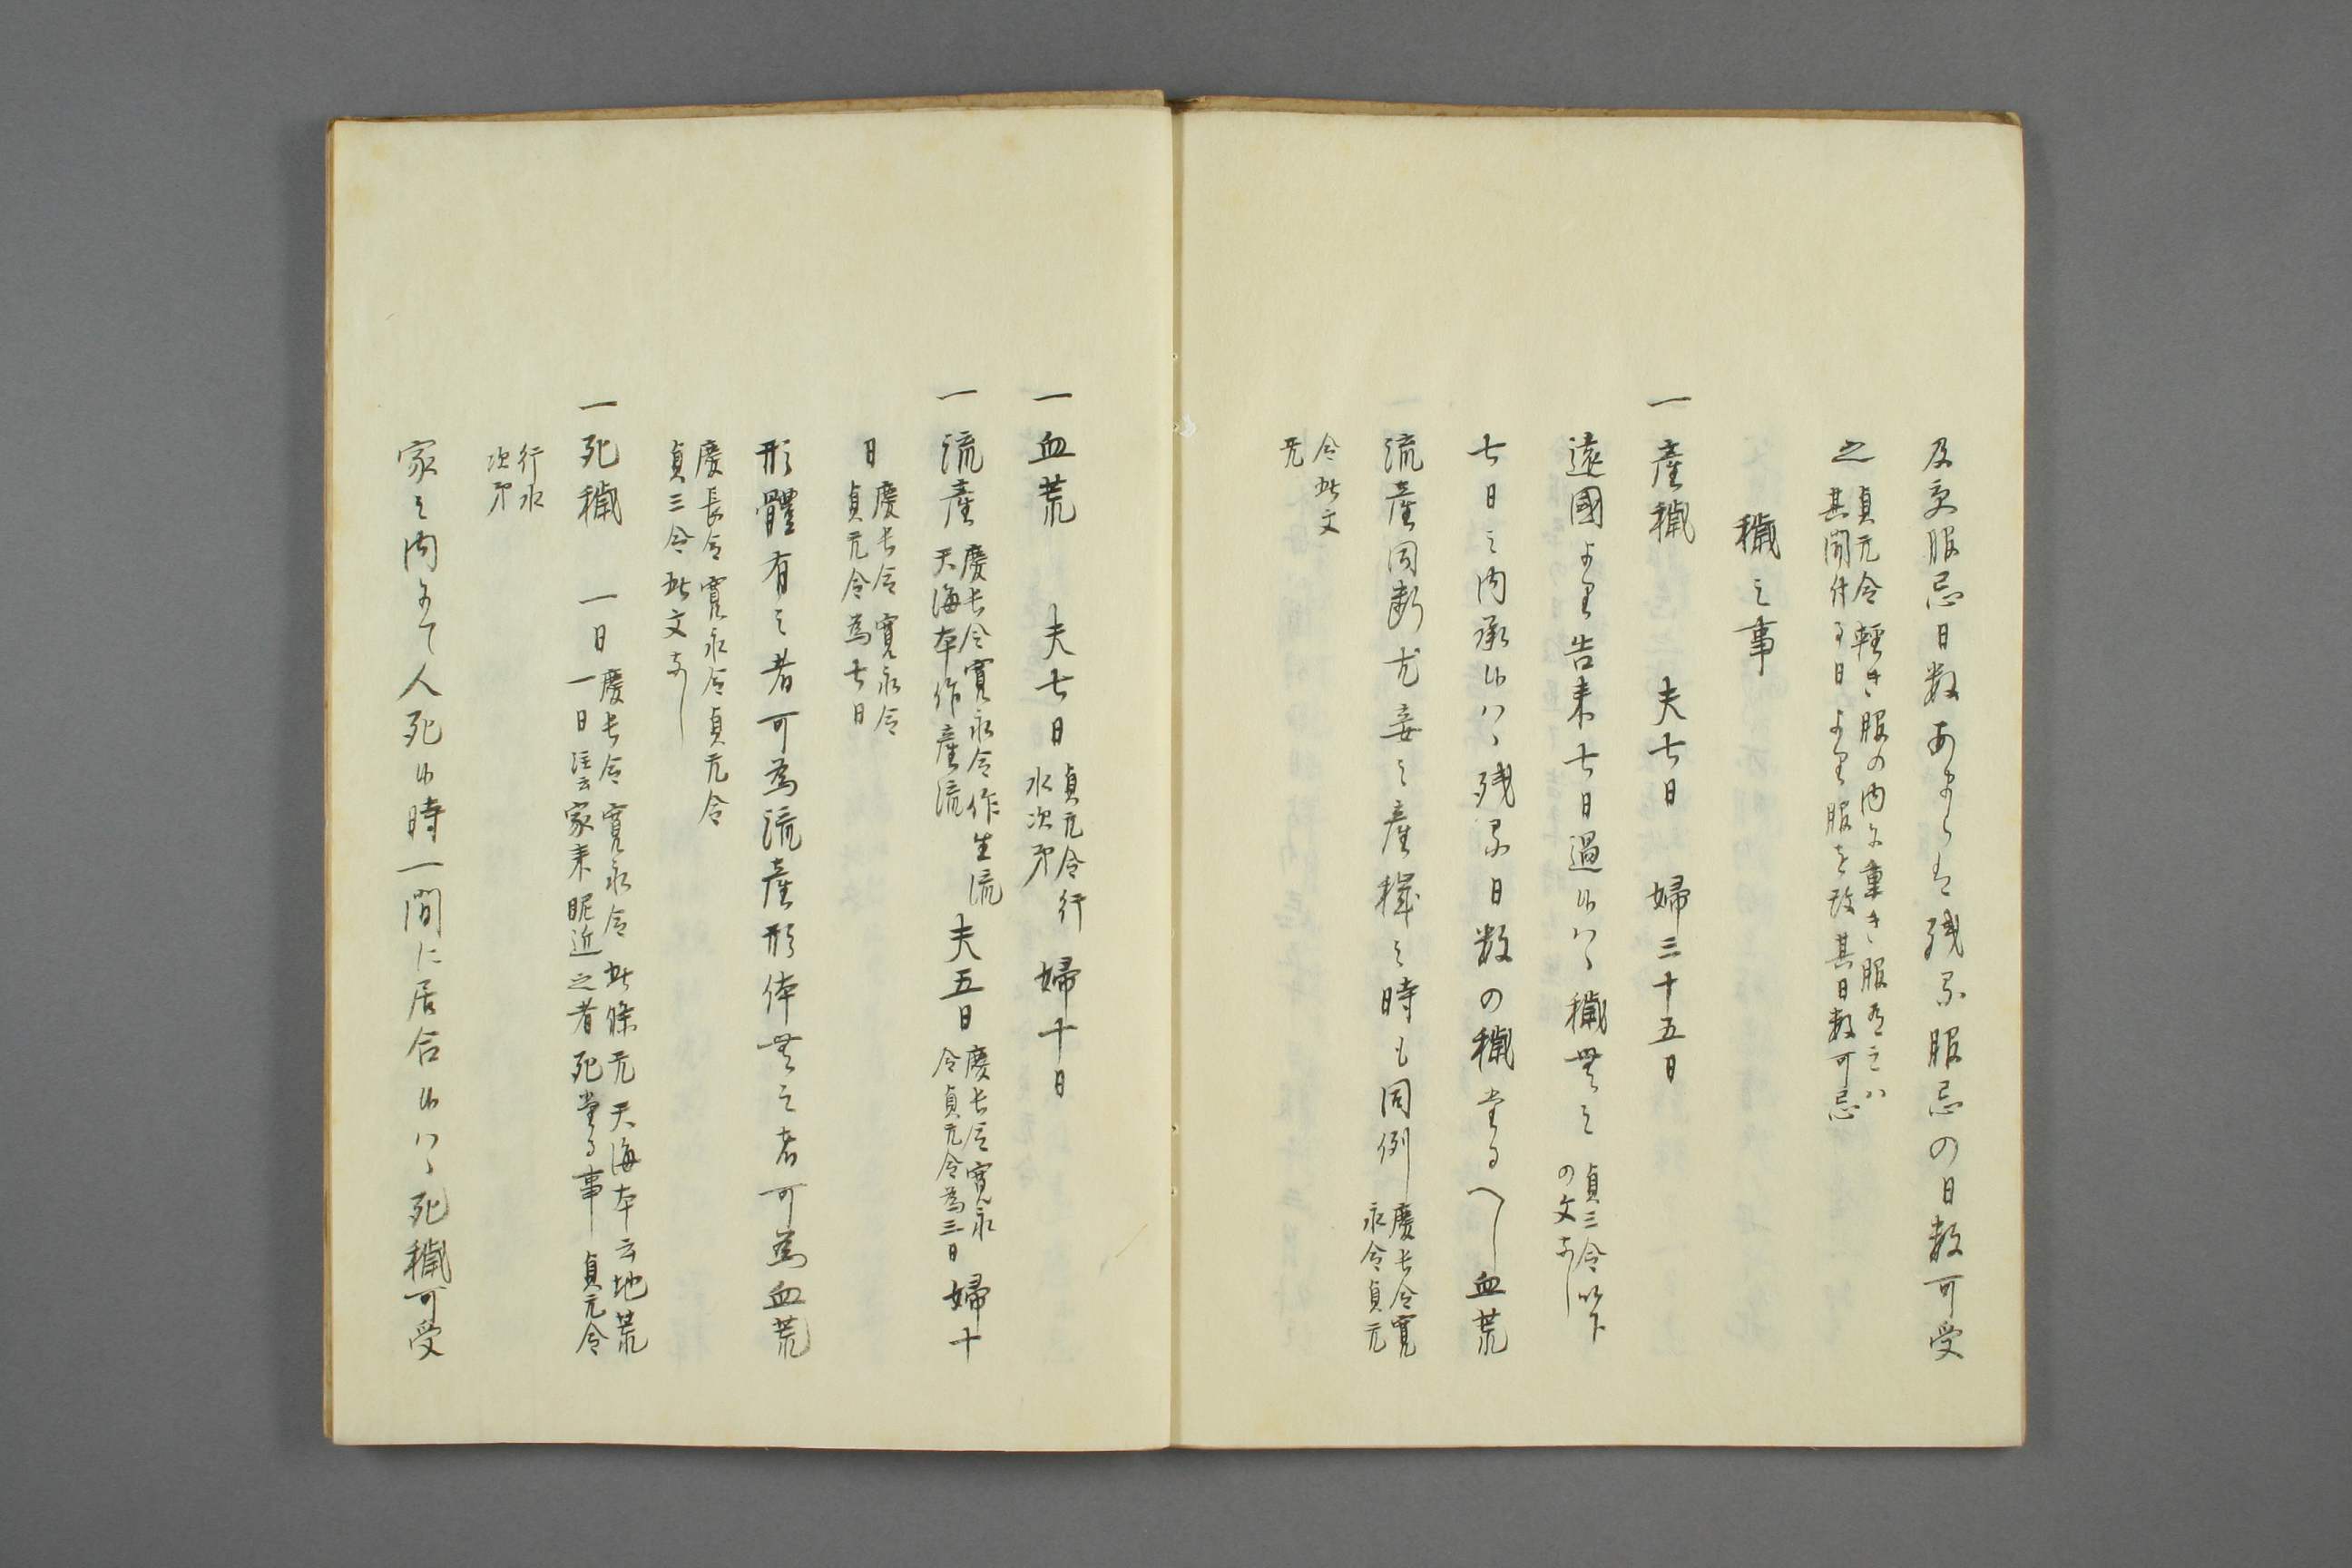 及交服忌日数あまらは残る服忌の日数可受
之 貞元令軽き服の内に重き服有之ハ
其聞付る日より服を改其日数可忌
穢之事
一産穢 夫七日 婦三十五日
遠國より告来七日過候ハヽ穢無之 貞三令以下
の文なし
七日之内承候ハヽ残る日数の穢たるへし血荒
流産同断尤妾之産穢之時も同例 慶長令寛
永令貞元
令此文
无
一血荒 夫七日 貞元令行
水次第 婦十日
一流産 慶長令寛永令作生流
天海本作産流 夫五日 慶長令寛永
令貞元令為三日 婦十
日 慶長令寛永令
貞元令為七日
形體有之者可為流産形体無之者可為血荒
慶長令寛永令貞元令
貞三令此文なし
一死穢 一日 慶長令寛永令此條无天海本云地荒
一日注云家来昵近之者死たる事 貞元令
行水
次第
家之内にて人死候時一間に居合候ハヽ死穢可受